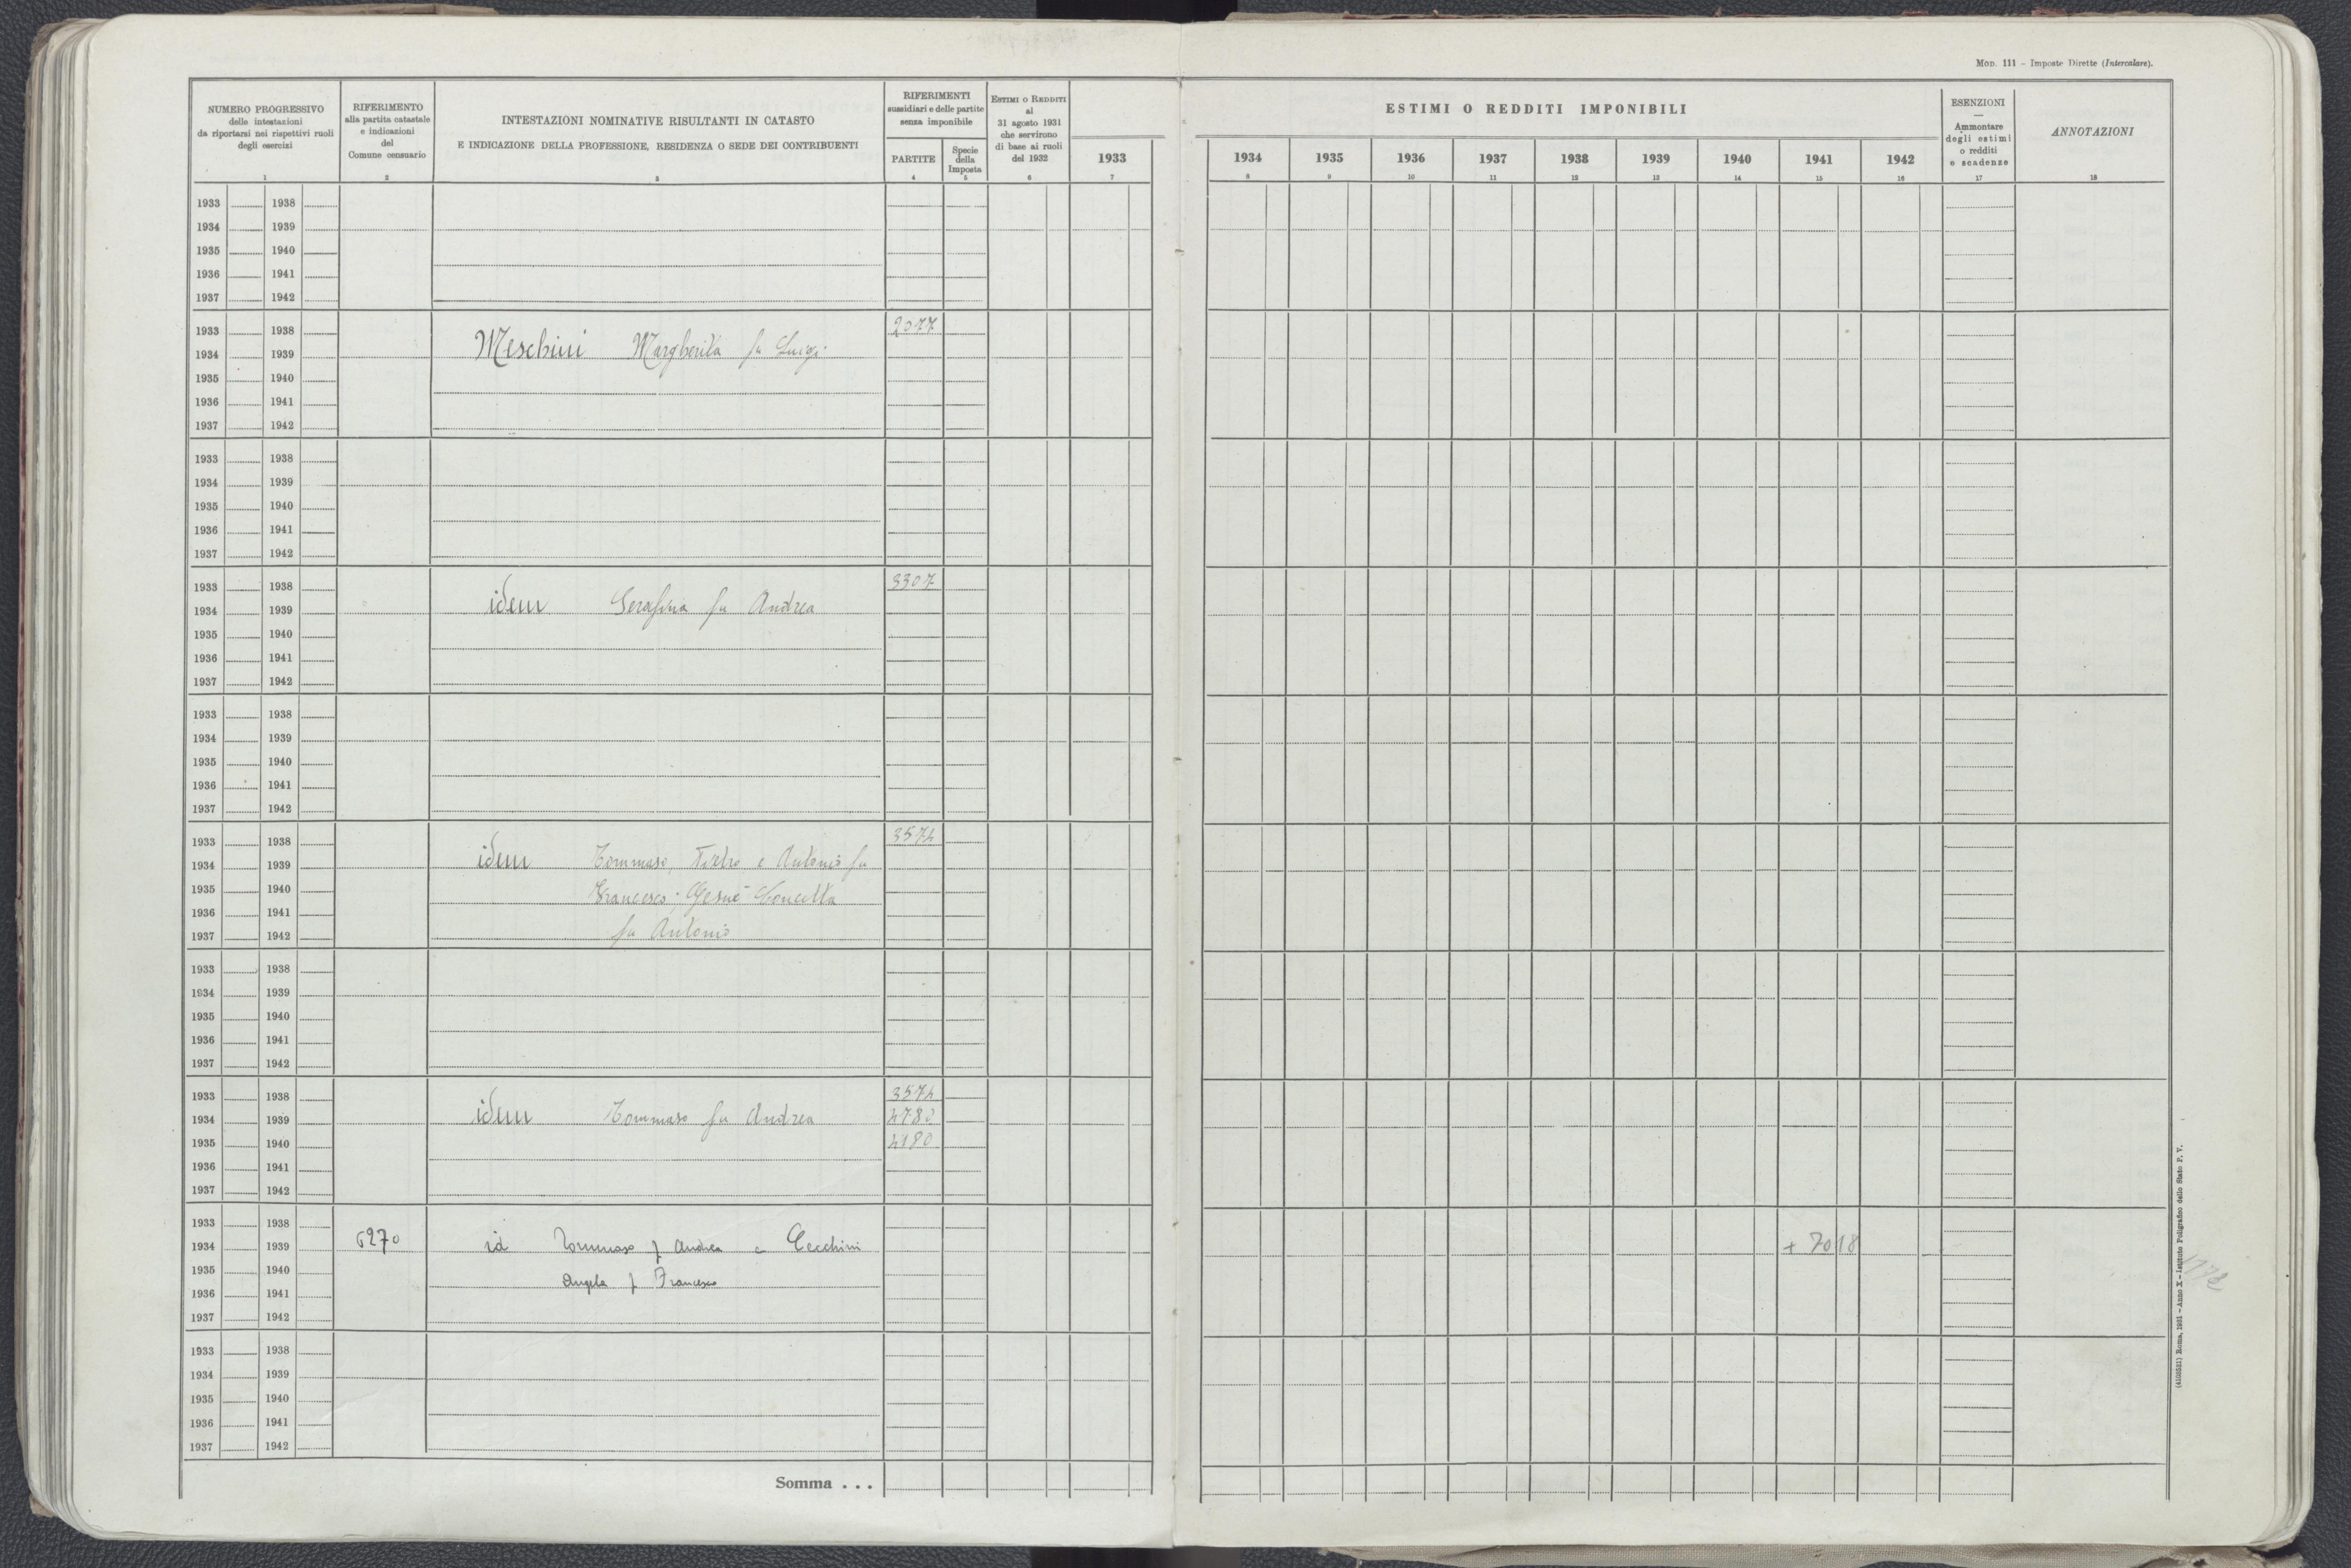 Mod. 111 – Imposte Dirette (Intercalare).
NUMERO PROGRESSIVO
delle intestazioni
da riportarsi nei rispettivi ruoli
degli esercizi
1
RIFERIMENTO
alla partita catastale
e indicazioni
del
Comune censuario
2
INTESTAZIONI NOMINATIVE RISULTANTI IN CATASTO
E INDICAZIONE DELLA PROFESSIONE, RESIDENZA O SEDE DEI CONTRIBUENTI
3
RIFERIMENTI
sussidiari e delle partite
senza imponibile
PARTITE
4
Specie
della
Imposta
5
Estimi o Redditi
al
31 agosto 1931
che servirono
di base ai ruoli
del 1932
6
1933
7
ESTIMI O REDDITI IMPONIBILI
1934 1935 1936 1937 1938 1939 1940 1941 1942
8 9 10 11 12 13 14 15 16
ESENZIONI
—
Ammontare
degli estimi
o redditi
e scadenze
17
ANNOTAZIONI
18
1933 1938
1934 1939
1935 1940
1936 1941
1937 1942
1933 1938 2077
1934 1939 Meschini Margherita fu Luigi
1935 1940
1936 1941
1937 1942
1933 1938
1934 1939
1935 1940
1936 1941
1937 1942
1933 1938 3307
1934 1939 idem Serafina fu Andrea
1935 1940
1936 1941
1937 1942
1933 1938
1934 1939
1935 1940
1936 1941
1937 1942
1933 1938 3574
1934 1939 idem Tommaso, Pietro e Antonio fu
1935 1940 Francesco; Gesuè Concetta
1936 1941
1937 1942 fu Antonio
1933 1938
1934 1939
1935 1940
1936 1941
1937 1942
1933 1938 3574
1934 1939 idem Tommaso fu Andrea
1935 1940 4180
1936 1941
1937 1942
1933 1938
1934 1939 6270 id Tommaso f Andrea e Cecchini + 7018
1935 1940 Angela f Francesco
1936 1941
1937 1942
1933 1938
1934 1939
1935 1940
1936 1941
1937 1942
Somma . . .
(4102531) Roma, 1931 – Anno X – Istituto Poligrafico dello Stato P. V.